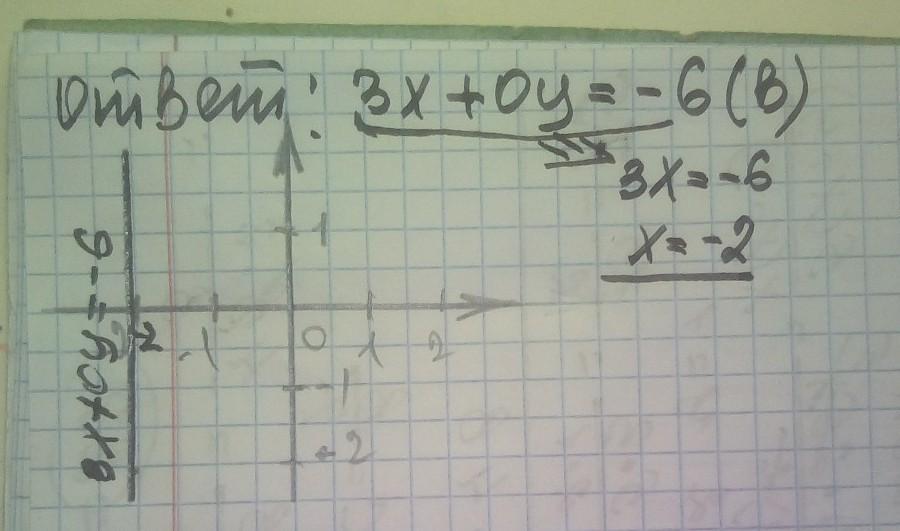 Ответ: 3x+0y=-6(В)
3x=-6
x=-2
3x+0y=-6
1
-2 -1 0 1 2
-1
-2